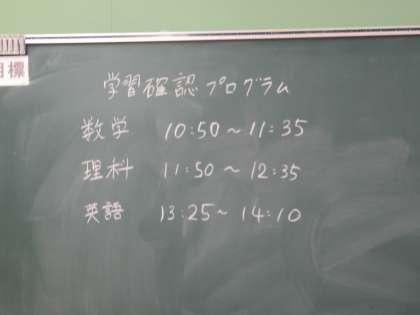 目標
学習確認プログラム
数学 10:50～11:35
理科 11:50～12:35
英語 13:25～14:10